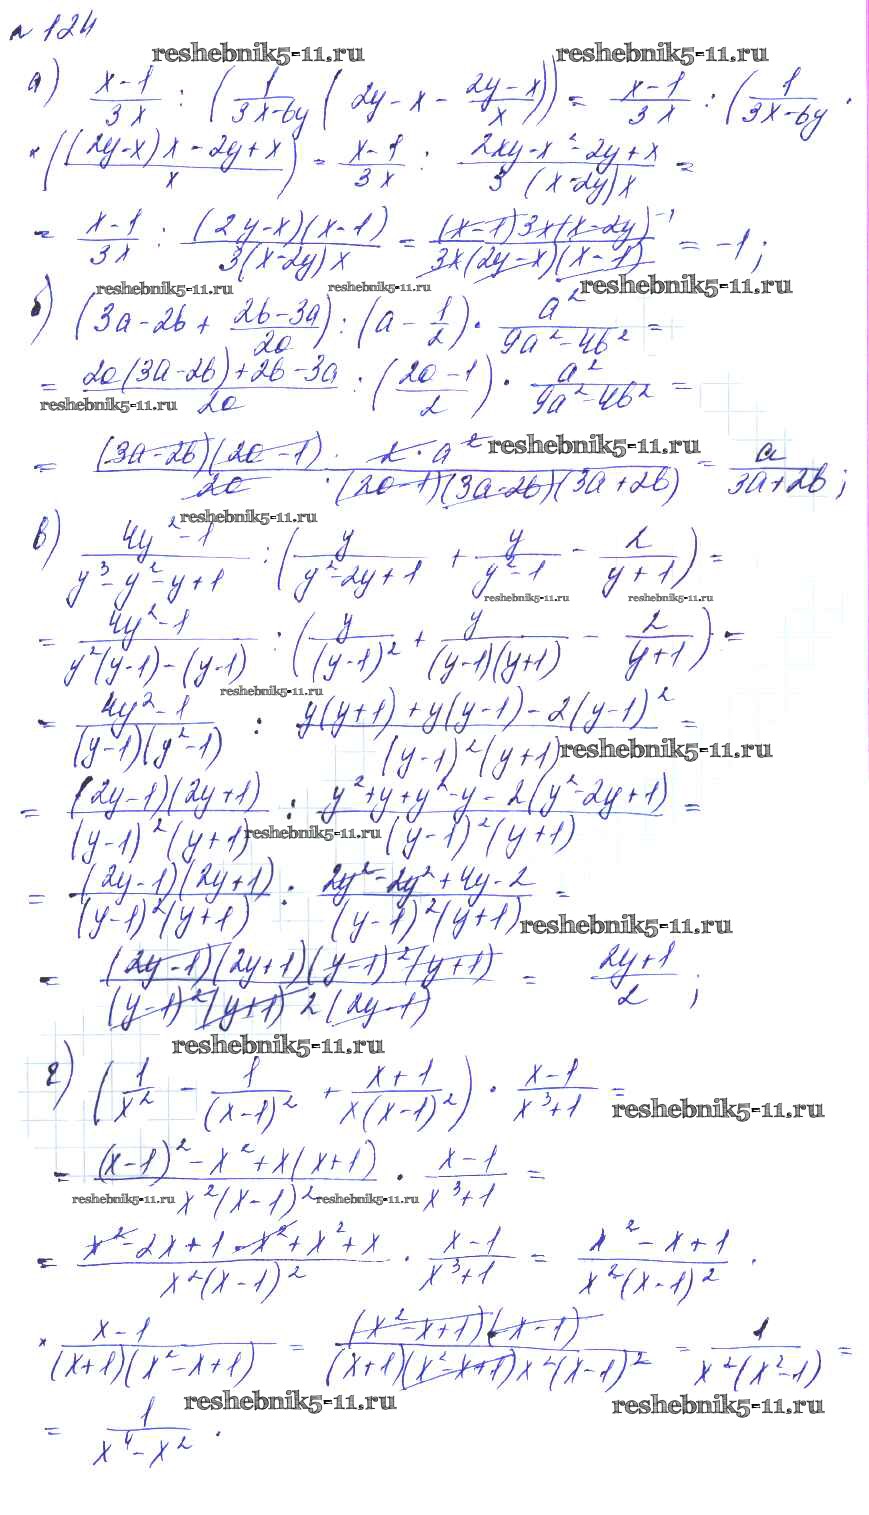 № 124
reshebnik5-11.ru reshebnik5-11.ru
а) (x-1)/(3x) : (1/(3x-6y) (2y-x-(2y-x)/x)) = (x-1)/(3x) : (1/(3x-6y) ·
× ((2y-x)x-2y+x)/x) = (x-1)/(3x) : (2xy-x²-2y+x)/(3(x-2y)x) =
= (x-1)/(3x) : ((2y-x)(x-1))/(3(x-2y)x) = ((x-1)3x(x-2y)⁻¹)/(3x(2y-x)(x-1)) = -1;
reshebnik5-11.ru reshebnik5-11.ru reshebnik5-11.ru
б) (3a-2b+(2b-3a)/(2a)) : (a-1/2) · a²/(9a²-4b²) =
= (2a(3a-2b)+2b-3a)/(2a) : ((2a-1)/2) · a²/(9a²-4b²) =
reshebnik5-11.ru
reshebnik5-11.ru
= ((3a-2b)(2a-1) · 2 · a²)/(2a · (2a-1)(3a-2b)(3a+2b)) = a/(3a+2b);
reshebnik5-11.ru
в) (4y²-1)/(y³-y²-y+1) : (y/(y²-2y+1) + y/(y²-1) - 2/(y+1)) =
reshebnik5-11.ru reshebnik5-11.ru
= (4y²-1)/(y²(y-1)-(y-1)) : (y/(y-1)² + y/((y-1)(y+1)) - 2/(y+1)) =
reshebnik5-11.ru
= (4y²-1)/((y-1)(y²-1)) : (y(y+1)+y(y-1)-2(y-1)²)/((y-1)²(y+1)) =
reshebnik5-11.ru
= ((2y-1)(2y+1))/((y-1)²(y+1)) : (y²+y+y²-y-2(y²-2y+1))/((y-1)²(y+1)) =
reshebnik5-11.ru
= ((2y-1)(2y+1))/((y-1)²(y+1)) : (2y²-2y²+4y-2)/((y-1)²(y+1)) =
reshebnik5-11.ru
= ((2y-1)(2y+1)(y-1)²(y+1))/((y-1)²(y+1) 2(2y-1)) = (2y+1)/2;
reshebnik5-11.ru
г) (1/x² - 1/(x-1)² + (x+1)/(x(x-1)²)) · (x-1)/(x³+1) =
reshebnik5-11.ru
= ((x-1)²-x²+x(x+1))/(x²(x-1)²) · (x-1)/(x³+1) =
reshebnik5-11.ru reshebnik5-11.ru
= (x²-2x+1-x²+x²+x)/(x²(x-1)²) · (x-1)/(x³+1) = (x²-x+1)/(x²(x-1)²) ·
× (x-1)/((x+1)(x²-x+1)) = ((x²-x+1)(x-1))/((x+1)(x²-x+1)x²(x-1)²) = 1/(x²(x²-1)) =
reshebnik5-11.ru reshebnik5-11.ru
= 1/(x⁴-x²).